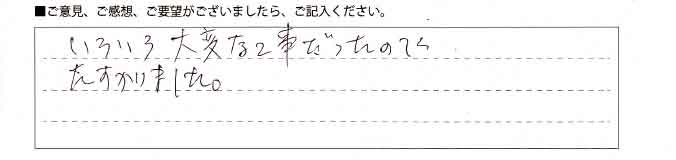 ■ご意見、ご感想、ご要望がございましたら、ご記入ください。
いろいろ大変なこ事だったので
たすかりました。